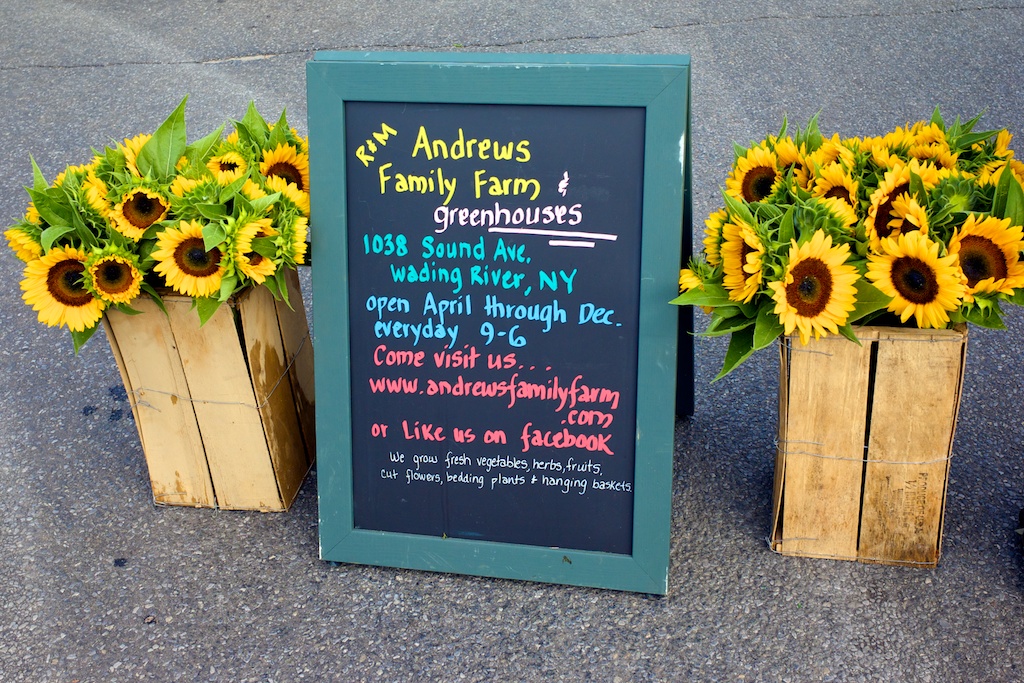 R&M
Andrews
Family Farm &
greenhouses
1038 Sound Ave,
Wading River, NY
open April through Dec.
everyday 9-6
Come visit us...
www.andrewsfamilyfarm
.com
or Like us on facebook
We grow fresh vegetables, herbs, fruits,
cut flowers, bedding plants & hanging baskets.